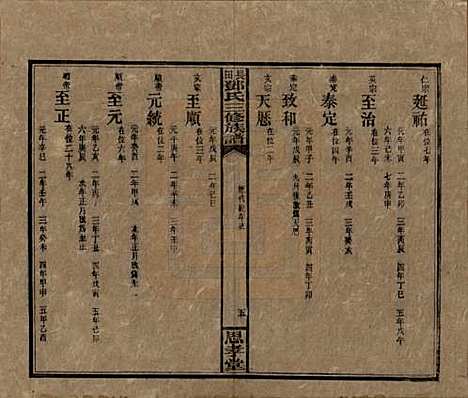 仁宗 延祐 在位七年
元年甲寅 二年乙卯 三年丙辰 四年丁巳 五年戊午
六年己未 七年庚申
英宗 至治 在位三年
元年辛酉 二年壬戌 三年癸亥
泰定 泰定 在位四年
元年甲子 二年乙丑 三年丙寅 四年丁卯
泰定 致和
元年戊辰 九月後
文宗 天厯 在位二年
元年戊辰 二年己巳
長田鄧氏三修族譜
歷代紀年
五
思孝堂
文宗 至順 在位三年
元年庚午 二年辛未 三年壬申
順帝 元統 在位二年
元年癸酉 二年甲戌
順帝 至元 在位六年
元年乙亥 二年丙子 三年丁丑 四年戊寅 五年己卯
六年庚辰
順帝 至正 在位二十八年
元年辛巳 二年壬午 三年癸未 四年甲申 五年乙酉